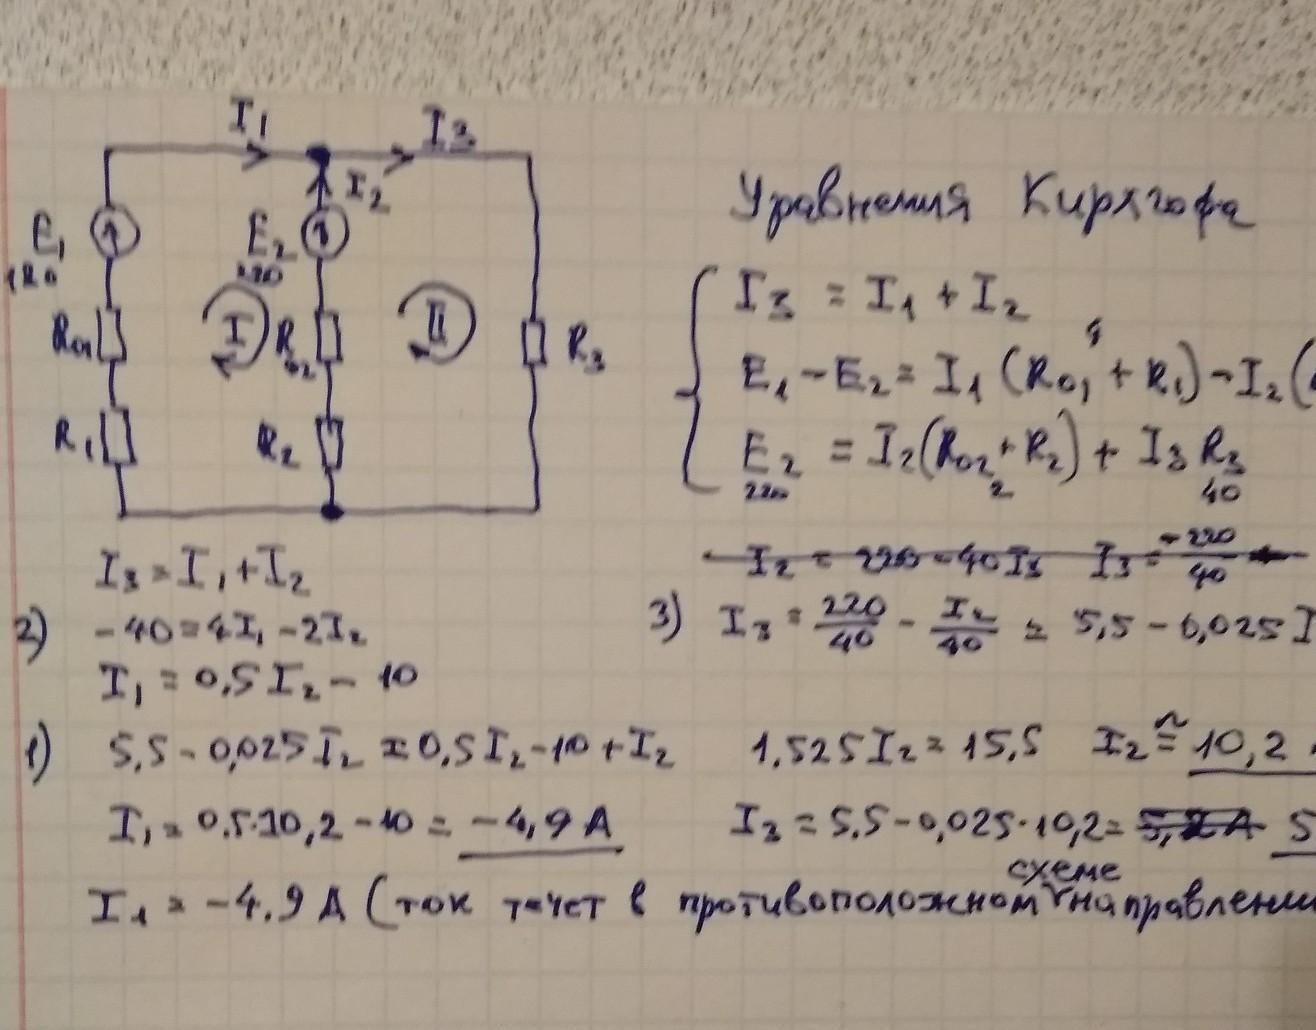 I₁ I₃
I₂
E₁ E₂
220
R₀₁ I R₀₂ II R₃
R₁ R₂
Уравнения Кирхгофа
I₃ = I₁ + I₂
E₁ - E₂ = I₁ (R₀₁ + R₁) - I₂ (
E₂ = I₂ (R₀₂ + R₂) + I₃ R₃
220 2 40
I₂ = 220 - 40I₃ I₃ = -220/40
I₃ = I₁ + I₂
2) -40 = 4I₁ - 2I₂
I₁ = 0,5I₂ - 10
3) I₃ = 220/40 - I₂/40 = 5,5 - 0,025 I
1) 5,5 - 0,025I₂ = 0,5I₂ - 10 + I₂ 1,525I₂ = 15,5 I₂ ≈ 10,2
I₁ = 0,5·10,2 - 10 = -4,9 А I₃ = 5,5 - 0,025·10,2 = 5,2 А 5
схеме
I₁ = -4,9 А (ток течет в противоположном направлении